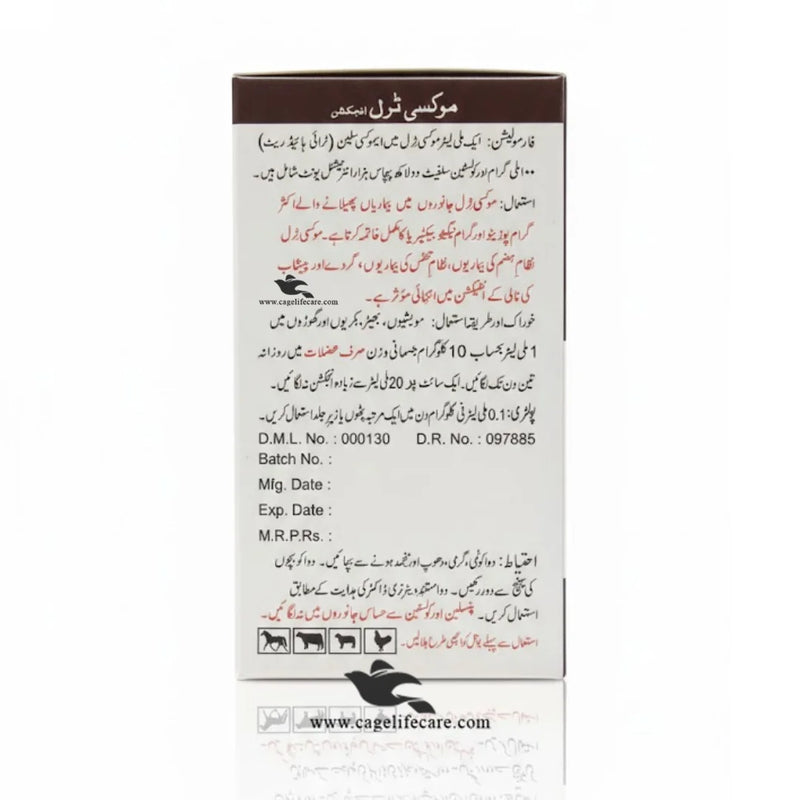 موکسی ٹرل انجکشن
فارمولیشن: ایک ملی لیٹر موکسی ٹرل میں ایموکسی سلین (ٹرائی ہائیڈریٹ)
۱۰۰ ملی گرام اور کولسٹین سلفیٹ دو لاکھ پچاس ہزار انٹرنیشنل یونٹ شامل ہیں۔
استعمال: موکسی ٹرل جانوروں میں بیماریاں پھیلانے والے اکثر
گرام پوزیٹو اور گرام نیگیٹو بیکٹیریا کا مکمل خاتمہ کرتا ہے۔ موکسی ٹرل
نظام ہضم کی بیماریوں، نظام تنفس کی بیماریوں، گردے اور پیشاب
کی نالی کے انفیکشن میں انتہائی مؤثر ہے۔
www.cagelifecare.com
خوراک اور طریقہ استعمال: مویشیوں، بھیڑ، بکریوں اور گھوڑوں میں
1 ملی لیٹر بحساب 10 کلوگرام جسمانی وزن صرف عضلات میں روزانہ
تین دن تک لگائیں۔ ایک سائٹ پر 20 ملی لیٹر سے زیادہ انجکشن نہ لگائیں۔
پولٹری: 0.1 ملی لیٹر فی کلوگرام دن میں ایک مرتبہ پٹھوں یا زیر جلد استعمال کریں۔
D.M.L. No. : 000130 D.R. No. : 097885
Batch No. :
Mfg. Date :
Exp. Date :
M.R.P.Rs. :
احتیاط: دوا کو نمی، گرمی، دھوپ اور منجمد ہونے سے بچائیں۔ دوا کو بچوں
کی پہنچ سے دور رکھیں۔ دوا مستند ویٹرنری ڈاکٹر کی ہدایت کے مطابق
استعمال کریں۔ پنسلین اور کولسٹین سے حساس جانوروں میں نہ لگائیں۔
استعمال سے پہلے بوتل کو اچھی طرح ہلالیں۔
www.cagelifecare.com